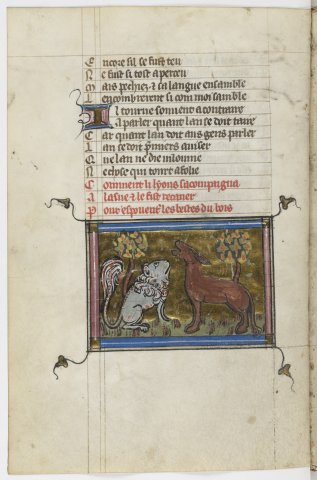 E ncore sil se fust teu
N e fust si tost aperceu
M ais pechiez & sa langue ensamble
L encombrerent si com moi samble
I l tourne souvent a contraire
A parler quant lan se doit taire
C ar quant lan doit as gens parler
L an se doit premiers aviser
Q ue lan ne die vilonnie
N e chose qui tourt a folie
C omment li lyons sacompaigna
A lasne & le fist recaner
P our espoenter les bestes du bois